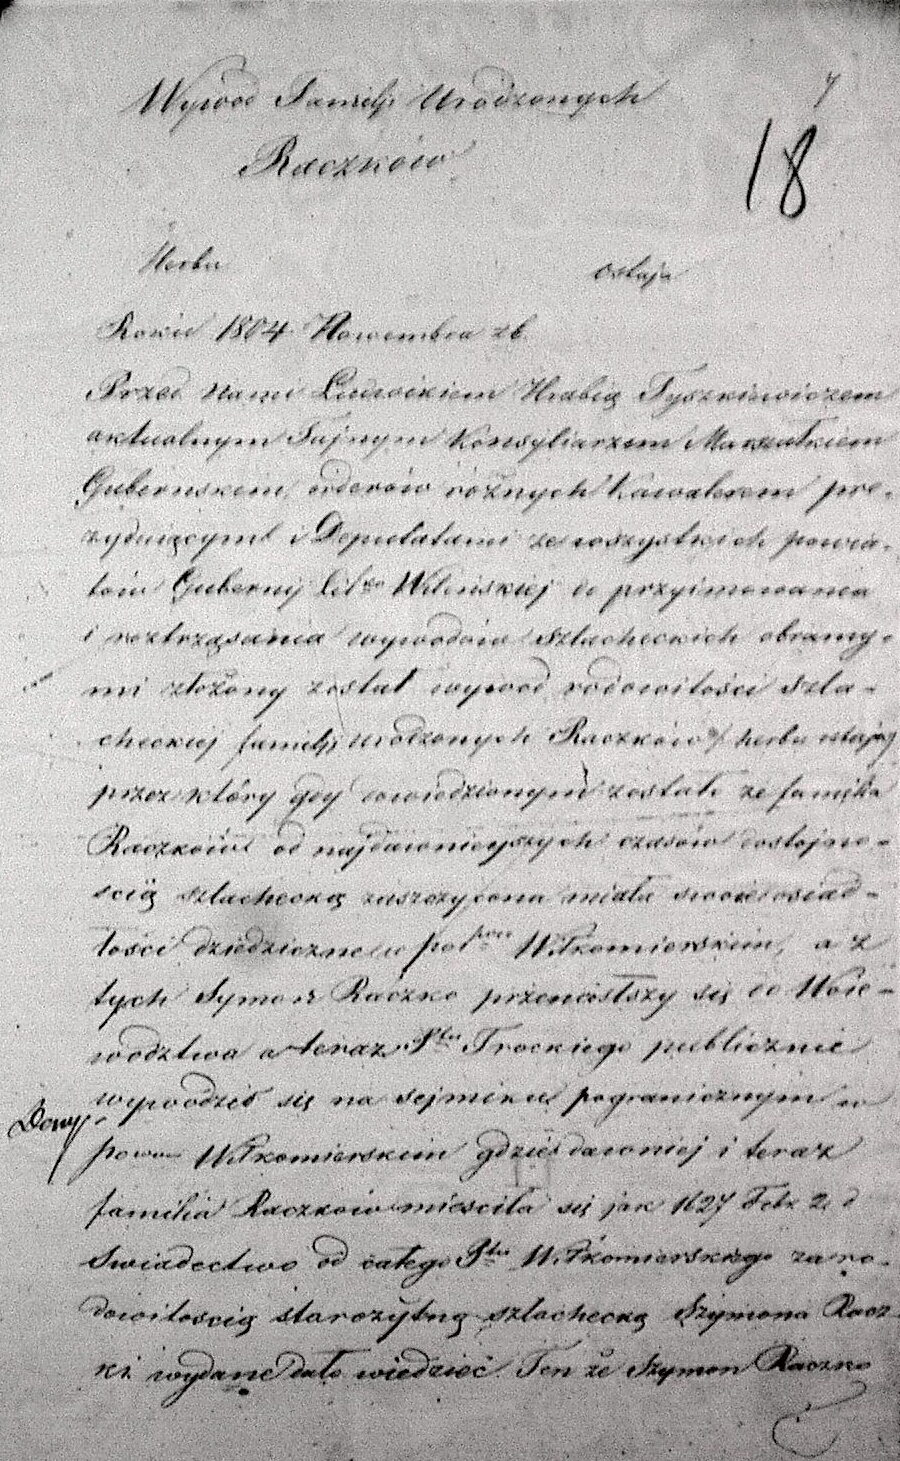 Wywod Familij Urodzonych
Raczków
7
18
Herbu ostaja
Roku 1804 Nowembra 26
Przed Nami Ludwikiem Hrabią Tyszkiewiczem
aktualnym Tajnym Konsyliarzem Marszałkiem
Gubernskim, orderów różnych Kawalerem pre-
zyduiącym i Deputatami ze wszystkich powia-
tów Gubernij Litt: Wileńskiej do przyimowania
i roztrząsania wywodów Szlacheckich obrany-
mi złożony został wywod rodowitości szla-
checkiej familij urodzonych Raczków herbu ostaja
przez który gdy dowiedzionym zostało że familia
Raczków od najdawnieyszych czasów dostojno-
scią szlachecką zaszczycona miała swoie osiad-
łości dziedziczne w Wiłkomierskim, a z
tych Symon Raczko przeniosłszy się do Woie-
wodztwa a teraz Ptu Trockiego publicznie
wywodził się na sejmiku pogranicznym w
Dowy
powie Wiłkomierskim gdzie dawniej i teraz
familia Raczków miesciła się jak 1627 Febr 2 d
Swiadectwo od całego Ptu Wiłkomierskiego za ro-
dowitoscią starożytną szlachecką Szymona Racz-
ki wydane dało wiedzieć. Ten że Szymon Raczko